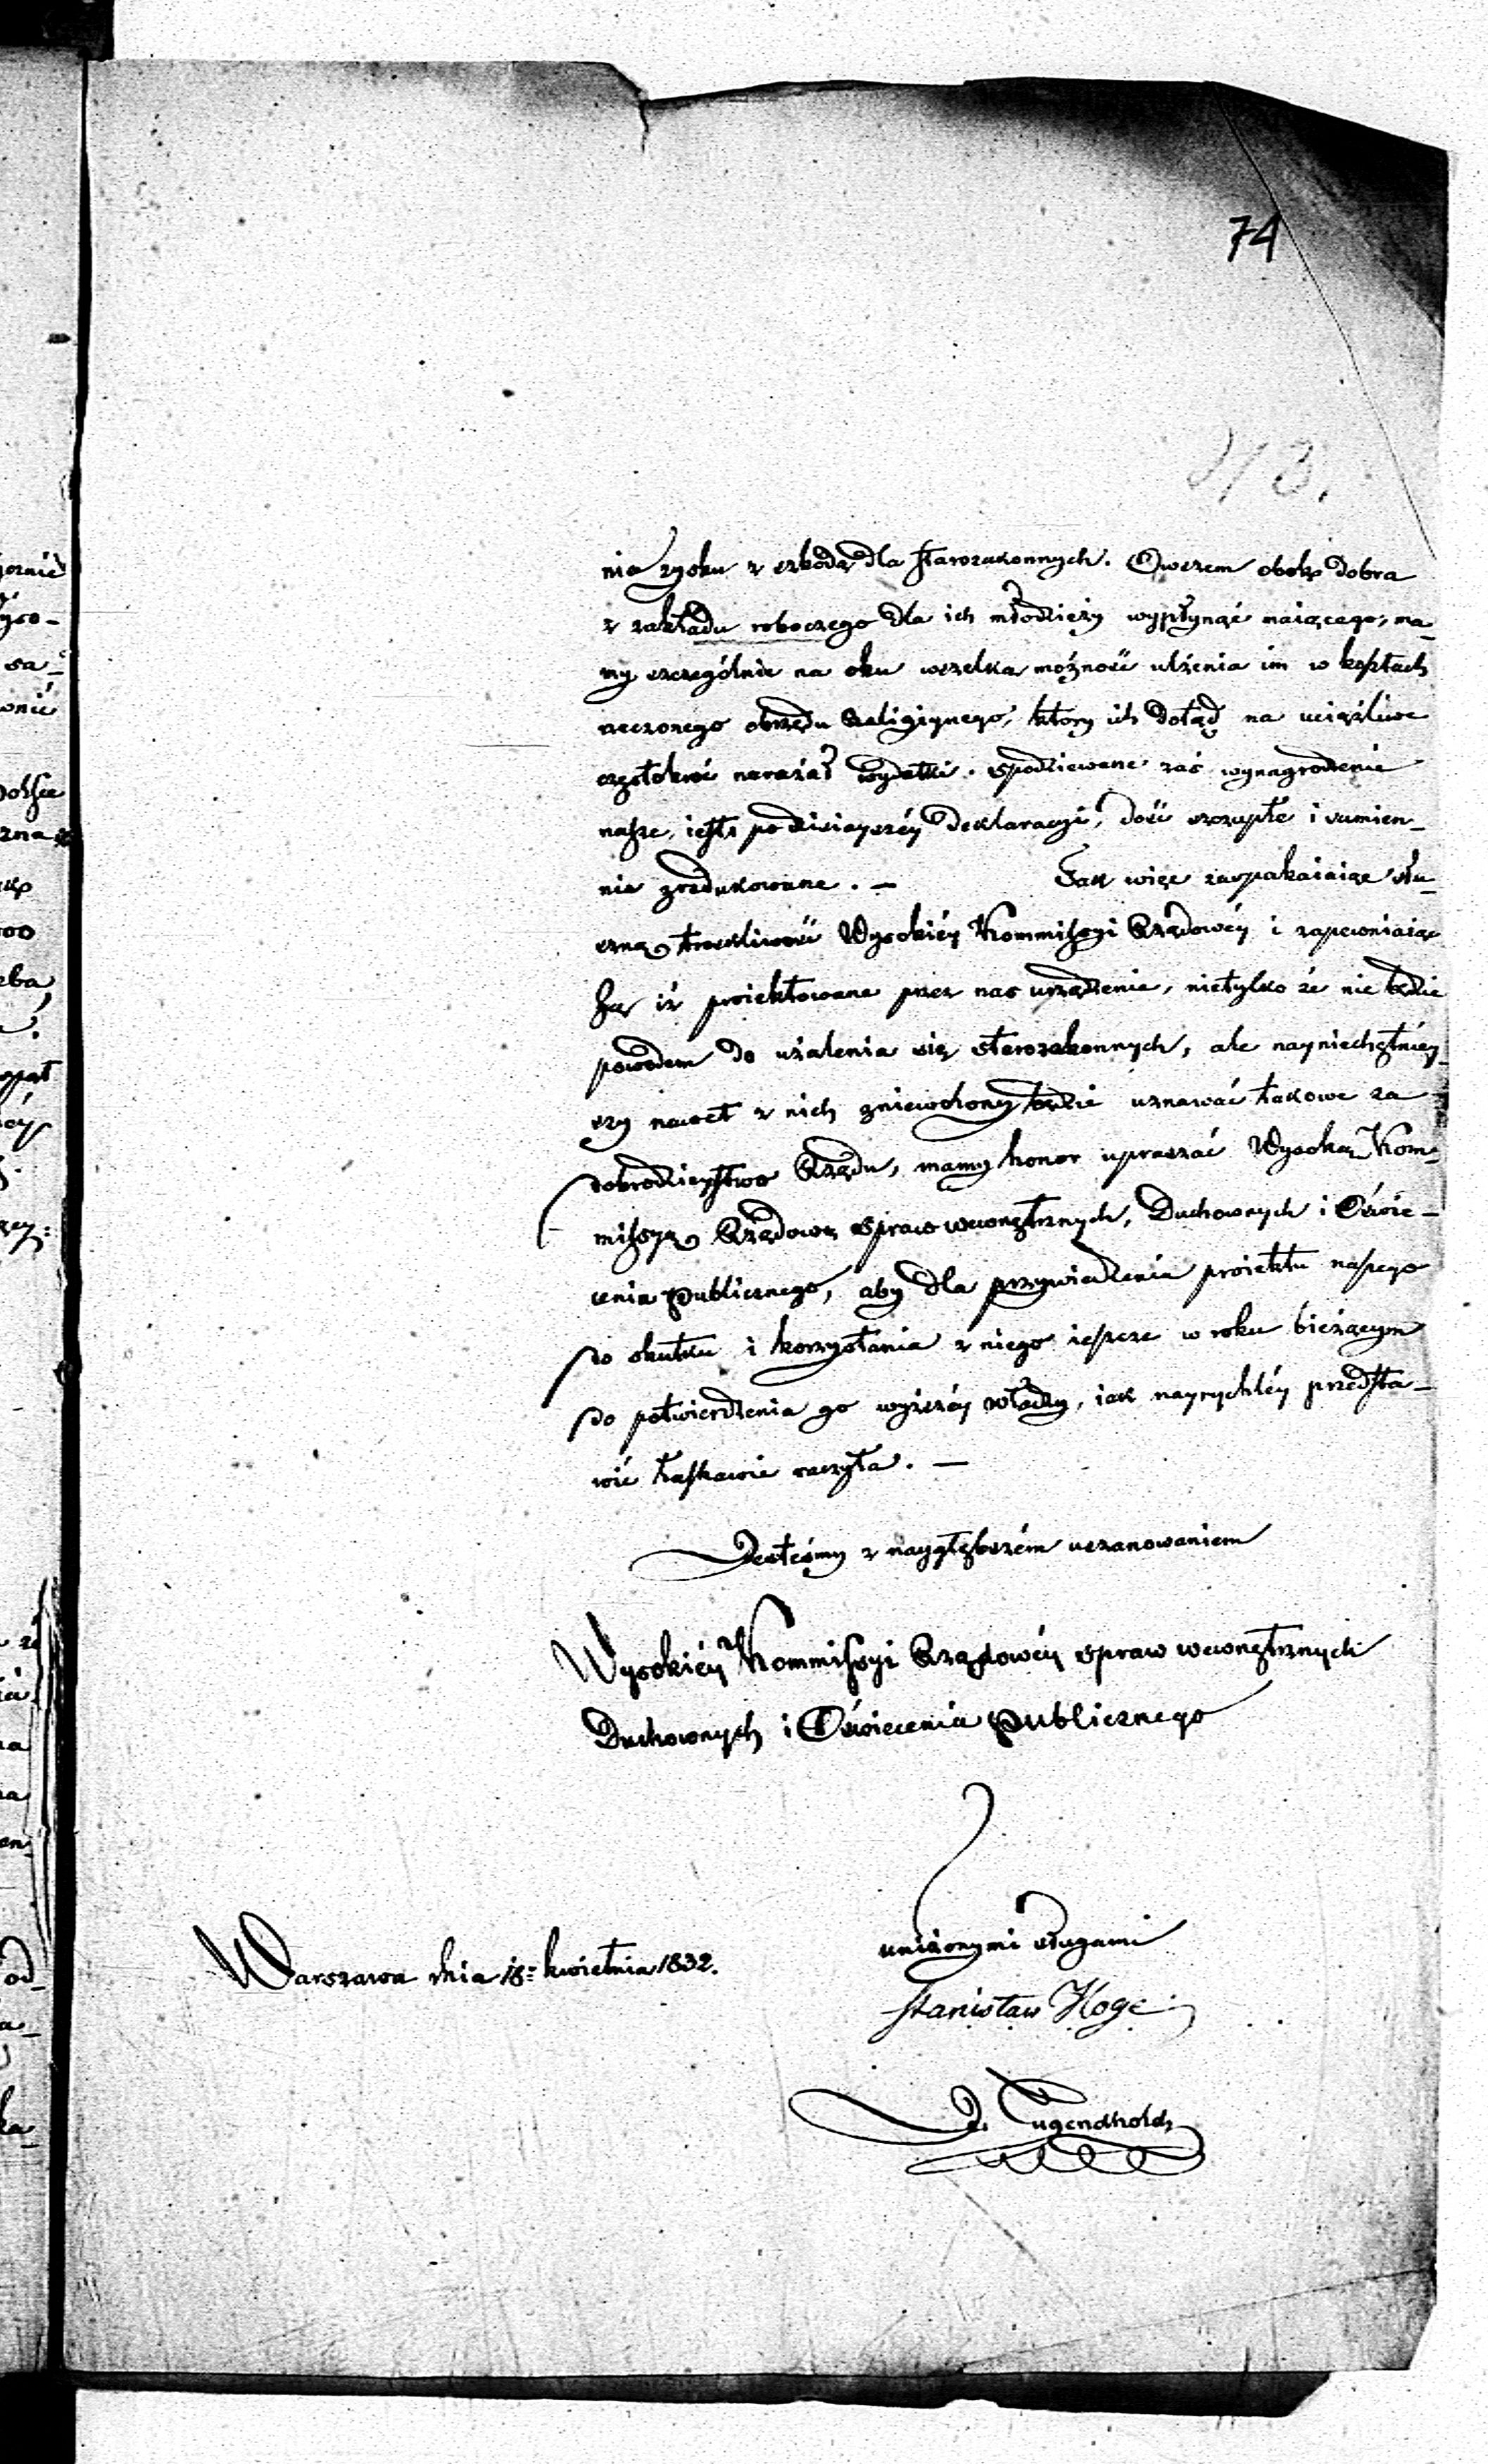 74
113.
nia zysku z szkodą dla starozakonnych. Owszem obok dobra
z zakładu roboczego dla ich młodzieży wypłynąć maiącego, ma_
my szczególnie na oku wszelką możność ulżenia im w kosztach
rzeczonego obrzędu Religiynego, który ich dotąd na uciążliwe
częstokroć narażał wydatki. Spodziewane zaś wynagrodzenie
nasze, iest, po dzisieyszéy deklaracyi, dość szczupłe i sumien_
nie zredukowane. — Tak więc zaspakaiaiąc słu_
szną troskliwość Wysokiéy Kommissyi Rządowéy i zapewniaiąc
Ją iż proiektowane przez nas urządzenie, nietylko że nie będzie
powodem do użalenia się starozakonnych, ale nayniechętniéy_
szy nawet z nich zniewolony będzie uznawać takowe za
dobrodzieystwo Rządu, mamy honor upraszać Wysoką Kom_
missyą Rządową Spraw wewnętrznych, Duchownych i Oświe_
cenia Publicznego, aby dla przywiedzenia proiektu naszego
do skutku i korzystania z niego ieszcze w roku bieżącym
do potwierdzenia go wyższéy władzy, iak nayrychléy przedsta_
wić łaskawie raczyła. —
Jesteśmy z naygłębszém uszanowaniem
Wysokiéy Kommissyi Rządowéy spraw wewnętrznych
Duchownych i Oświecenia Publicznego
uniżonymi sługami
Warszawa dnia 18. kwietnia 1832.
Stanisław Hoge
J. Tugendhold